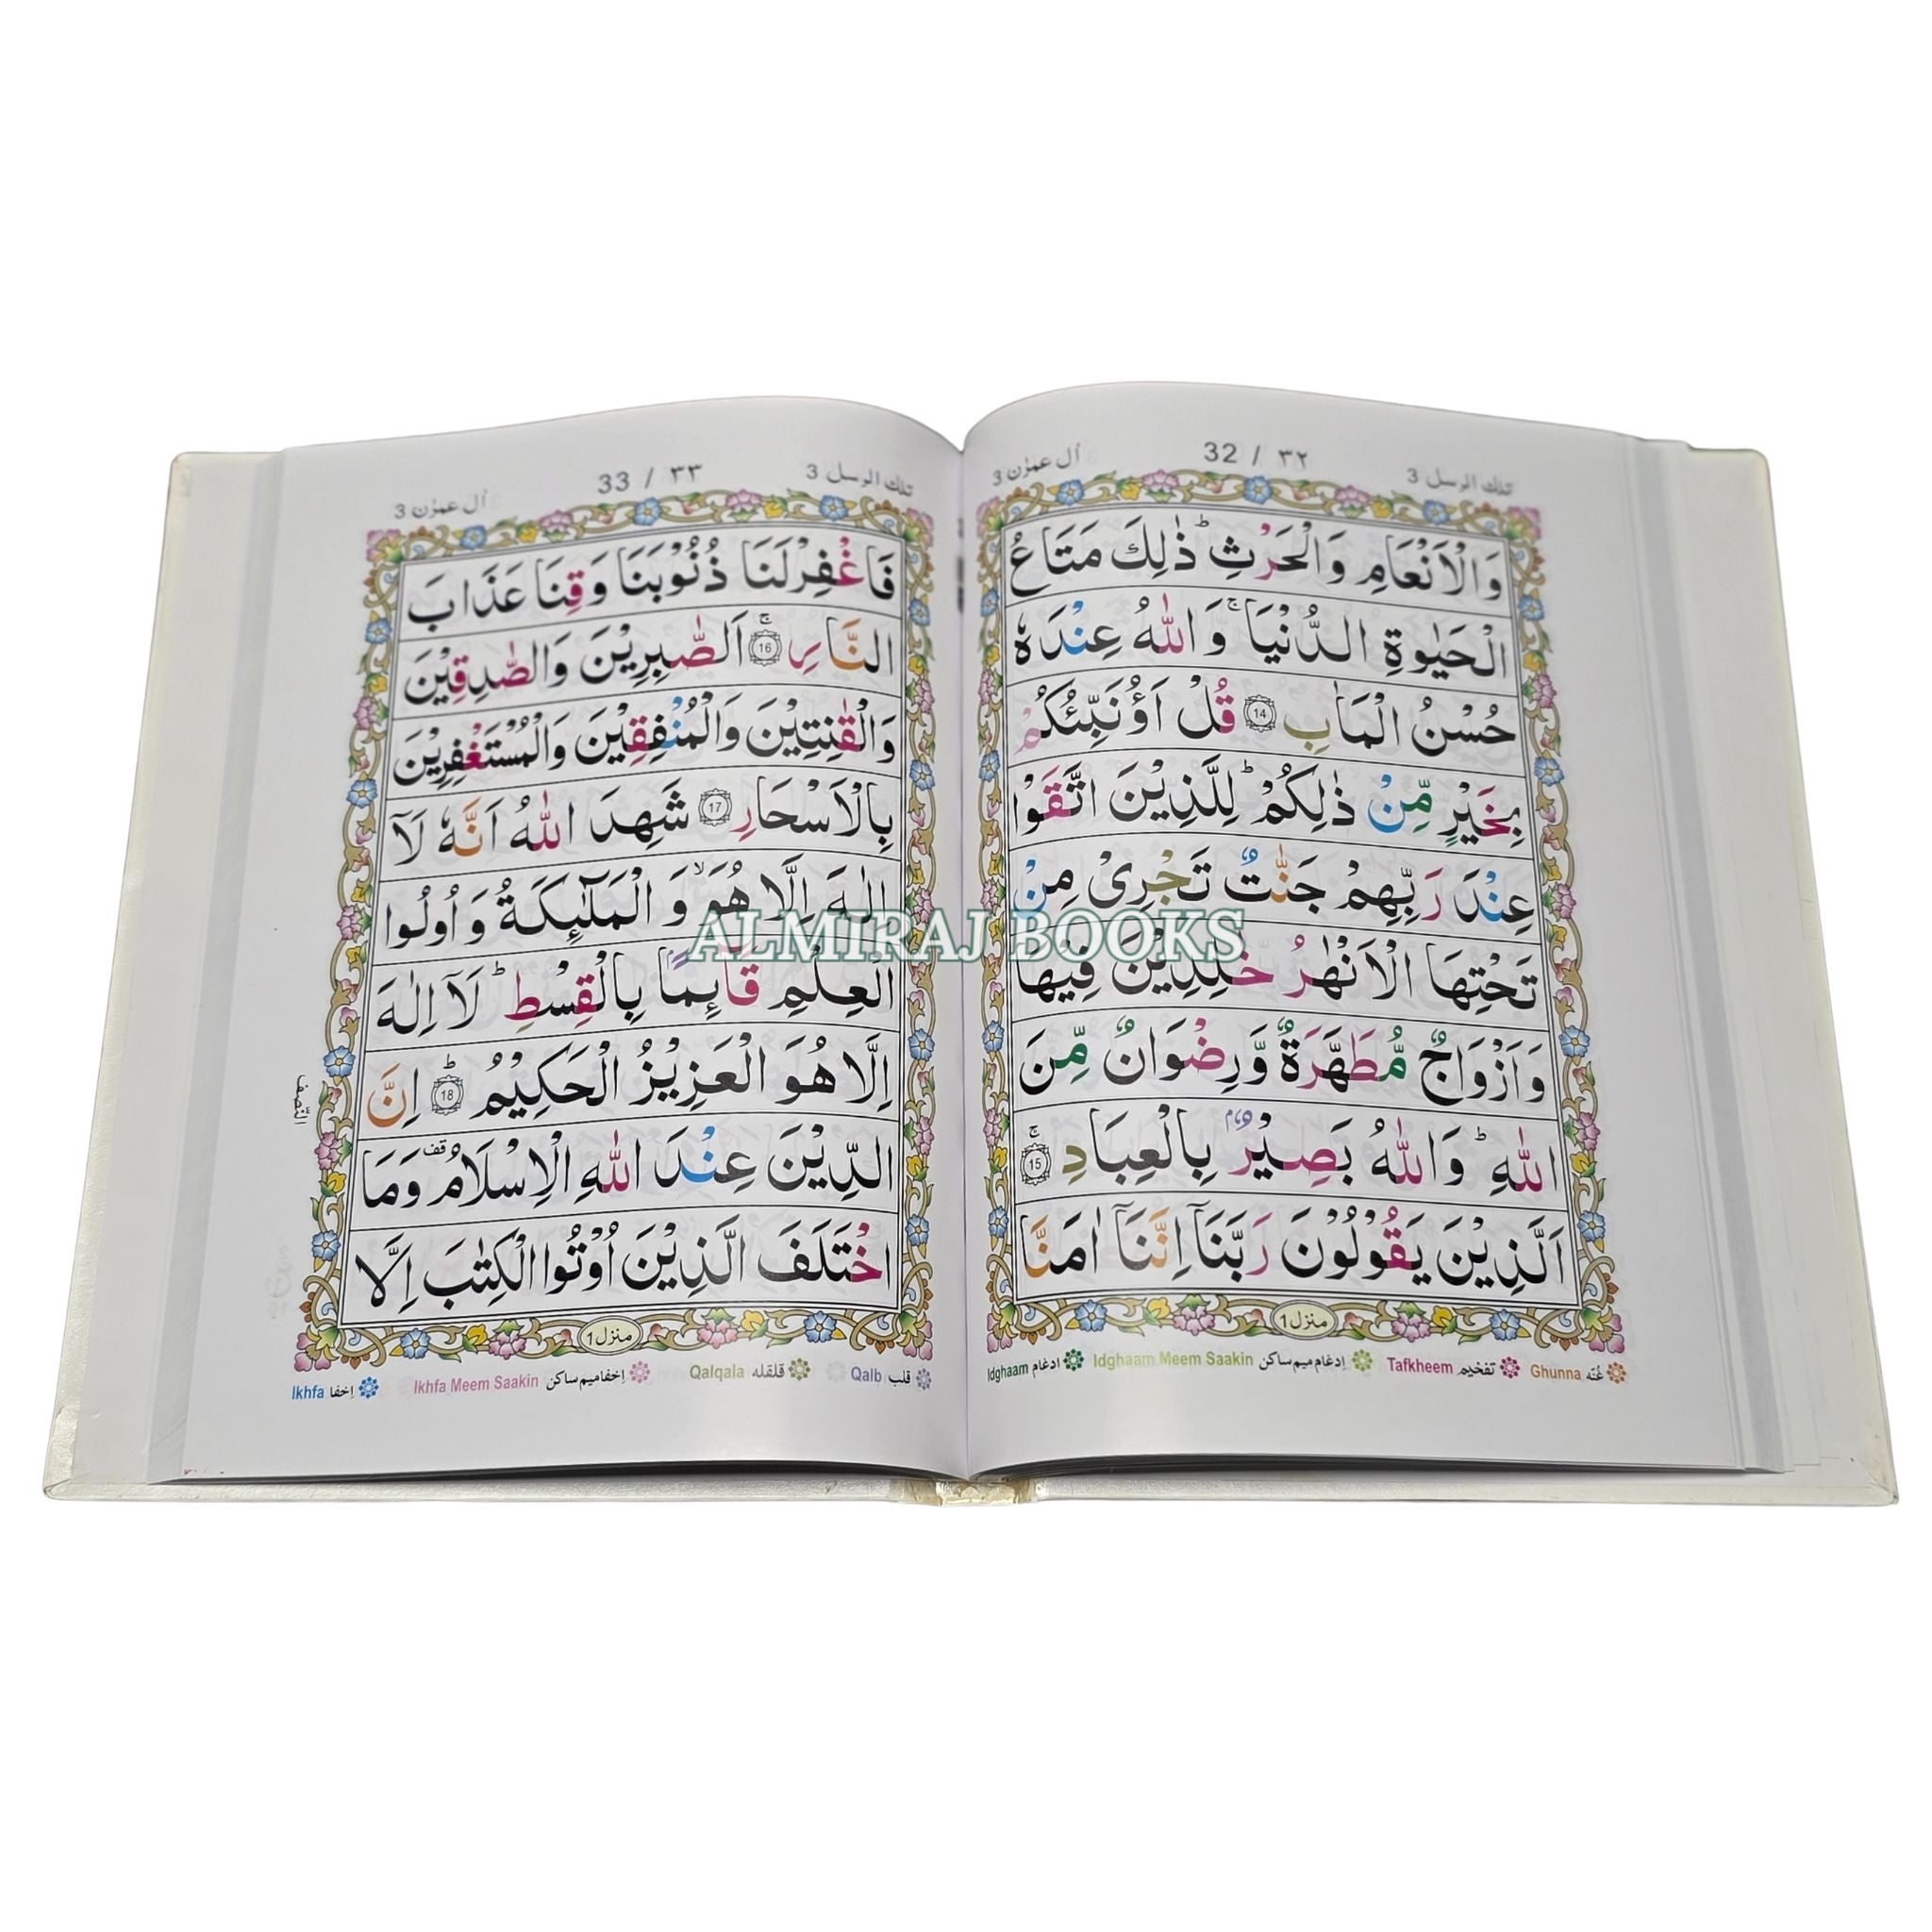 تلك الرسل 3
32 / ٣٢
اٰل عمرٰن 3
وَالْاَنْعَامِ وَالْحَرْثِ ؕ ذٰلِكَ مَتَاعُ
الْحَيٰوةِ الدُّنْيَا ۚ وَاللّٰهُ عِنْدَهٗ
حُسْنُ الْمَاٰبِ 14 قُلْ اَؤُنَبِّئُكُمْ
بِخَيْرٍ مِّنْ ذٰلِكُمْ ؕ لِلَّذِيْنَ اتَّقَوْا
عِنْدَ رَبِّهِمْ جَنّٰتٌ تَجْرِيْ مِنْ
تَحْتِهَا الْاَنْهٰرُ خٰلِدِيْنَ فِيْهَا
وَاَزْوَاجٌ مُّطَهَّرَةٌ وَّرِضْوَانٌ مِّنَ
اللّٰهِ ؕ وَاللّٰهُ بَصِيْرٌۢ بِالْعِبَادِ ۚ 15
اَلَّذِيْنَ يَقُوْلُوْنَ رَبَّنَاۤ اِنَّنَاۤ اٰمَنَّا
منزل 1
غُنّه Ghunna تفخيم Tafkheem اِدغام ميم ساكن Idghaam Meem Saakin ادغام Idghaam
تلك الرسل 3
33 / ٣٣
اٰل عمرٰن 3
فَاغْفِرْلَنَا ذُنُوْبَنَا وَقِنَا عَذَابَ
النَّارِ ۚ 16 اَلصّٰبِرِيْنَ وَالصّٰدِقِيْنَ
وَالْقٰنِتِيْنَ وَالْمُنْفِقِيْنَ وَالْمُسْتَغْفِرِيْنَ
بِالْاَسْحَارِ 17 شَهِدَ اللّٰهُ اَنَّهٗ لَاۤ
اِلٰهَ اِلَّا هُوَ ۙ وَ الْمَلٰٓئِكَةُ وَ اُولُوا
الْعِلْمِ قَآئِمًا بِالْقِسْطِ ؕ لَاۤ اِلٰهَ
اِلَّا هُوَ الْعَزِيْزُ الْحَكِيْمُ ؕ 18 اِنَّ
الدِّيْنَ عِنْدَ اللّٰهِ الْاِسْلَامُ قف وَمَا
اخْتَلَفَ الَّذِيْنَ اُوْتُوا الْكِتٰبَ اِلَّا
النّصف
منزل 1
قلب Qalb قلقله Qalqala اِخفا ميم ساكن Ikhfa Meem Saakin اِخفا Ikhfa
ALMIRAJ BOOKS